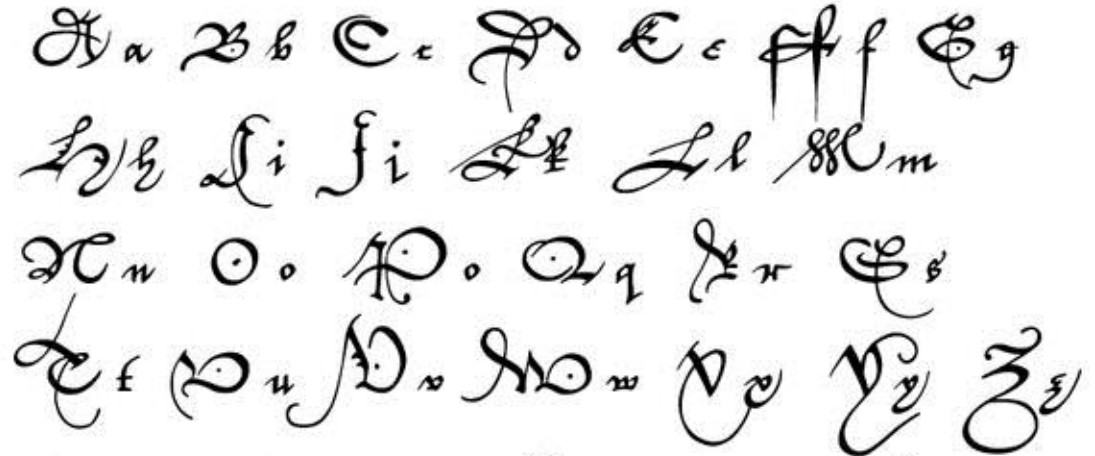 A a B b C c D d E e F f G g
H h I i J j K k L l M m
N n O o P o Q q R r S s
T t U u V v W w X x Y y Z z